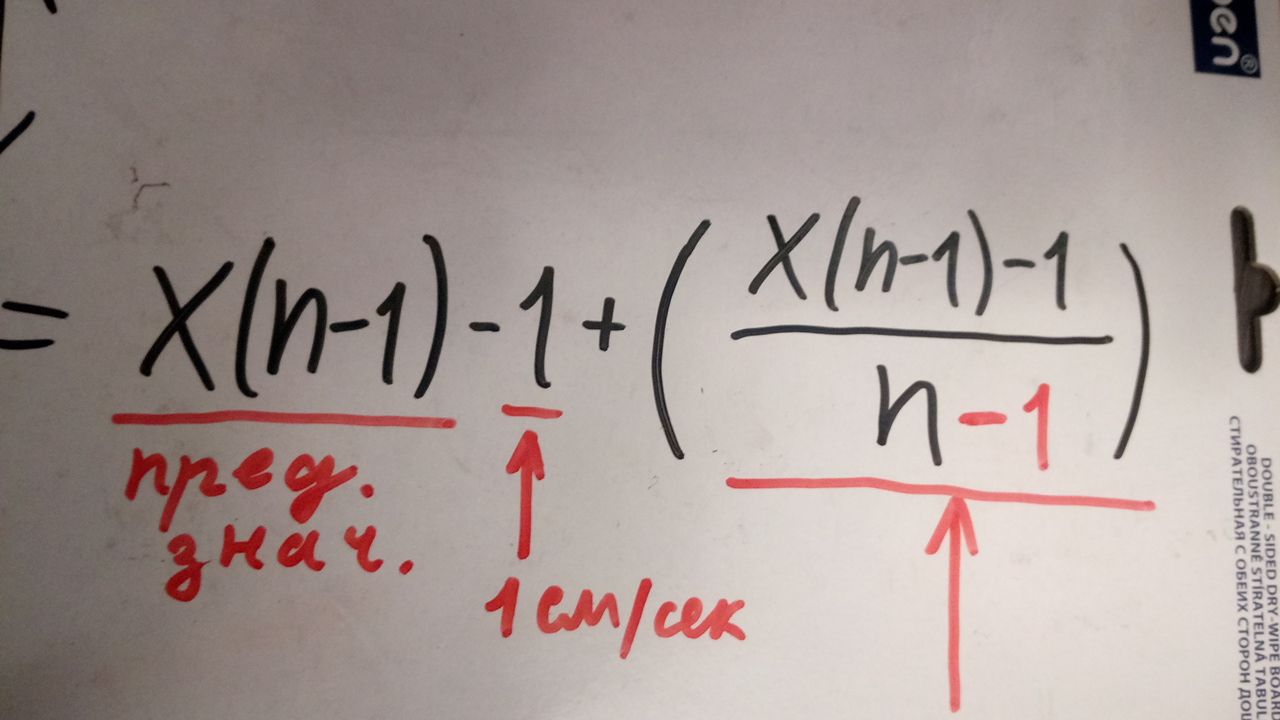 pen®
= X(n-1) - 1 + (X(n-1)-1 / n-1)
пред.
знач.
1 см/сек
DOUBLE - SIDED DRY-WIPE BOAR
OBOUSTRANNĚ STÍRATELNÁ TABUL
СТИРАТЕЛЬНАЯ С ОБЕИХ СТОРОН ДОС